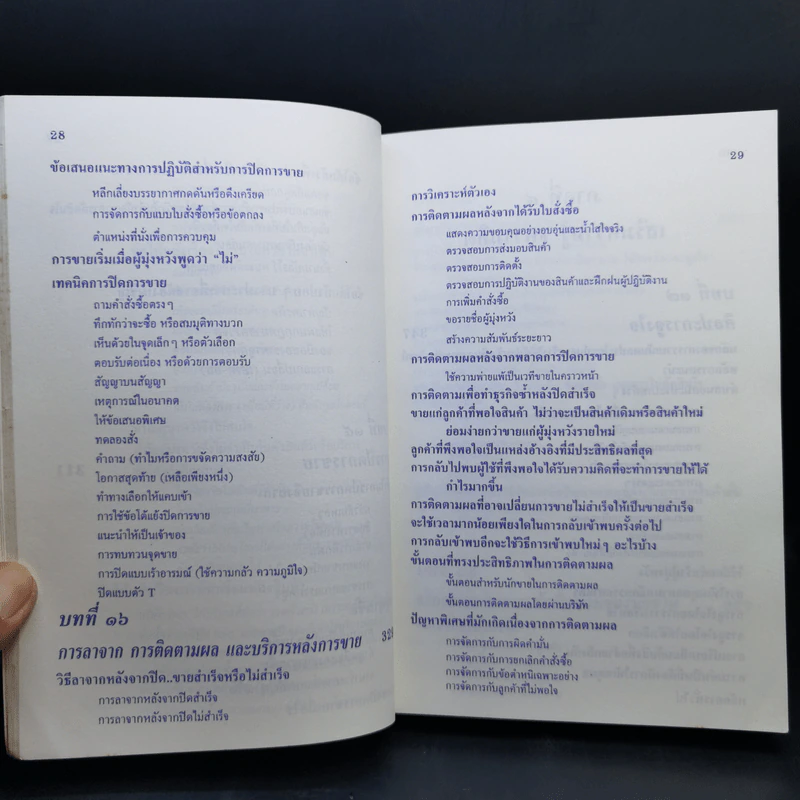 28
ข้อเสนอแนะทางการปฏิบัติสำหรับการปิดการขาย
หลีกเลี่ยงบรรยากาศกดดันหรือตึงเครียด
การจัดการกับแบบใบสั่งซื้อหรือข้อตกลง
ตำแหน่งที่นั่งเพื่อการควบคุม
การขายเริ่มเมื่อผู้มุ่งหวังพูดว่า "ไม่"
เทคนิคการปิดการขาย
ถามคำสั่งซื้อตรงๆ
ทึกทักว่าจะซื้อ หรือสมมุติทางบวก
เห็นด้วยในจุดเล็กๆ หรือตัวเลือก
ตอบรับต่อเนื่อง หรือด้วยการตอบรับ
สัญญาบนสัญญา
เหตุการณ์ในอนาคต
ให้ข้อเสนอพิเศษ
ทดลองสั่ง
คำถาม (ทำไมหรือการขจัดความสงสัย)
โอกาสสุดท้าย (เหลือเพียงหนึ่ง)
ทำทางเลือกให้แคบเข้า
การใช้ข้อโต้แย้งปิดการขาย
แนะนำให้เป็นเจ้าของ
การทบทวนจุดขาย
การปิดแบบเร้าอารมณ์ (ใช้ความกลัว ความภูมิใจ)
ปิดแบบตัว T
บทที่ ๑๖
การลาจาก การติดตามผล และบริการหลังการขาย
วิธีลาจากหลังจากปิด..ขายสำเร็จหรือไม่สำเร็จ
การลาจากหลังจากปิดสำเร็จ
การลาจากหลังจากปิดไม่สำเร็จ
29
การวิเคราะห์ตัวเอง
การติดตามผลหลังจากได้รับใบสั่งซื้อ
แสดงความขอบคุณอย่างอบอุ่นและน้ำใสใจจริง
ตรวจสอบการส่งมอบสินค้า
ตรวจสอบการติดตั้ง
ตรวจสอบการปฏิบัติงานของสินค้าและฝึกฝนผู้ปฏิบัติงาน
การเพิ่มคำสั่งซื้อ
ขอรายชื่อผู้มุ่งหวัง
สร้างความสัมพันธ์ระยะยาว
การติดตามผลหลังจากพลาดการปิดการขาย
ใช้ความพ่ายแพ้เป็นเวทีขายในคราวหน้า
การติดตามเพื่อทำธุรกิจซ้ำหลังปิดสำเร็จ
ขายแก่ลูกค้าที่พอใจสินค้า ไม่ว่าจะเป็นสินค้าเดิมหรือสินค้าใหม่
ย่อมง่ายกว่าขายแก่ผู้มุ่งหวังรายใหม่
ลูกค้าที่พึงพอใจเป็นแหล่งอ้างอิงที่มีประสิทธิผลที่สุด
การกลับไปพบผู้ใช้ที่พึงพอใจได้รับความคิดที่จะทำการขายให้ได้
กำไรมากขึ้น
การติดตามผลที่อาจเปลี่ยนการขายไม่สำเร็จให้เป็นขายสำเร็จ
จะใช้เวลามากน้อยเพียงใดในการกลับเข้าพบครั้งต่อไป
การกลับเข้าพบอีกจะใช้วิธีการเข้าพบใหม่ๆ อะไรบ้าง
ขั้นตอนที่ทรงประสิทธิภาพในการติดตามผล
ขั้นตอนสำหรับนักขายในการติดตามผล
ขั้นตอนการติดตามผลโดยผ่านบริษัท
ปัญหาพิเศษที่มักเกิดเนื่องจากการติดตามผล
การจัดการกับการผิดคำมั่น
การจัดการกับการยกเลิกคำสั่งซื้อ
การจัดการกับข้อตำหนิเฉพาะอย่าง
การจัดการกับลูกค้าที่ไม่พอใจ